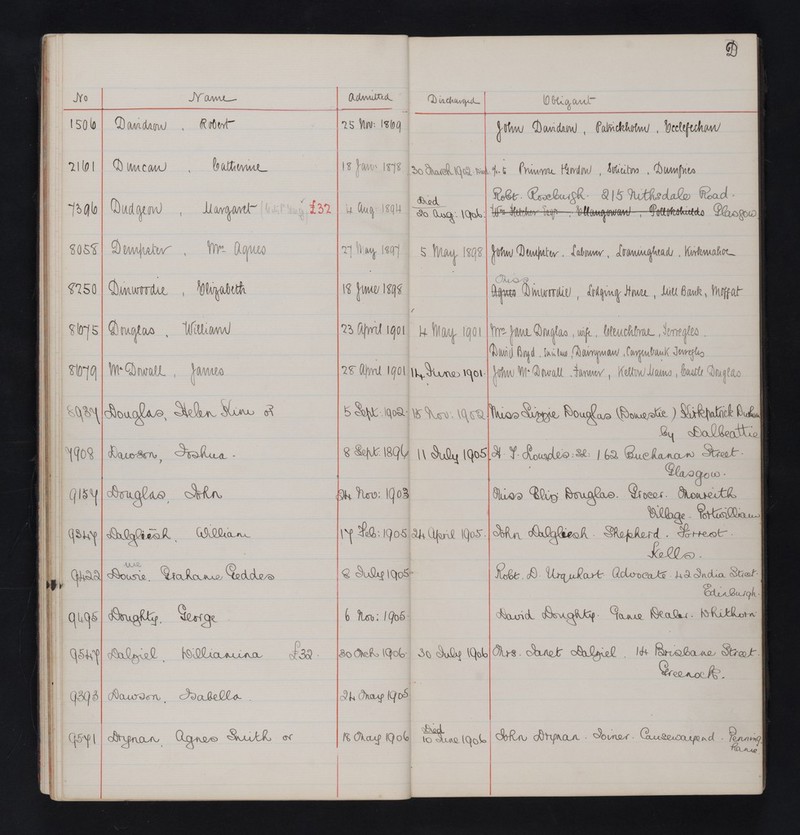 D
No Name Admitted Discharged Obligant
1506 Davidson, Robert 25 Nov: 1869 John Davidson, Patrickholm, Ecclefechan
2161 Duncan, Catherine 18 Jan: 1878 30 March 1902 Primrose & Gordon, Solicitors, Dumfries
Died Robt. Roxburgh. 215 Nithsdale Road.
7396 Dudgeon, Margaret £32 4 Aug 1894 20 Aug: 1906 Pollokshields Glasgow
8058 Dempster, Mrs Agnes 27 May 1897 5 May 1898 John Dempster. Labourer, Loaninghead, Kirkmahoe
8250 Dinwoodie, Elizabeth 18 June 1898 Agnes Dinwoodie, Lodging House, Well Bank, Moffat
8675 Douglas, William 23 April 1901 4 May 1901 Mrs Jane Douglas, wife, Terregles
David Boyd, Dairyman, Carpenbank Terregles
8679 McDowall, James 28 April 1901 14 June 1901 John McDowall, Farmer, Kelton Mains, Castle Douglas
8937 Douglas, Helen or 5 Sept: 1902 15 Nov: 1902 Miss Lizzie Douglas (Domestic) Kirkpatrick Durham
By Dalbeattie
7908 Dawson, Joshua. 8 Sept: 1896 11 July 1905 162 Buchanan Street.
Glasgow.
9154 Douglas, John 24 Nov: 1903 Miss Eliz: Douglas. Grocer. Monreith
Village. Portwilliam
9347 Dalgleish, William 17 Feb: 1905 24 April 1905 John Dalgleish. Shepherd. Forrest.
Kells.
9422 Dowie, Grahame Geddes 8 July 1905 Robt. D. Urquhart Advocate 42 India Street.
Edinburgh.
9495 Doughty, George 6 Nov: 1905 David Doughty. Game Dealer. Whithorn
9547 Dalziel, Williamina £32. 30 Mch: 1906 30 July 1906 Mrs. Janet Dalziel. 14 Brisbane Street.
Greenock.
9393 Dawson, Isabella 24 May 1905
Died
9571 Drynan, Agnes Smith or 18 May 1906 10 June 1906 John Drynan. Joiner. Causewayend. Penning
hame.